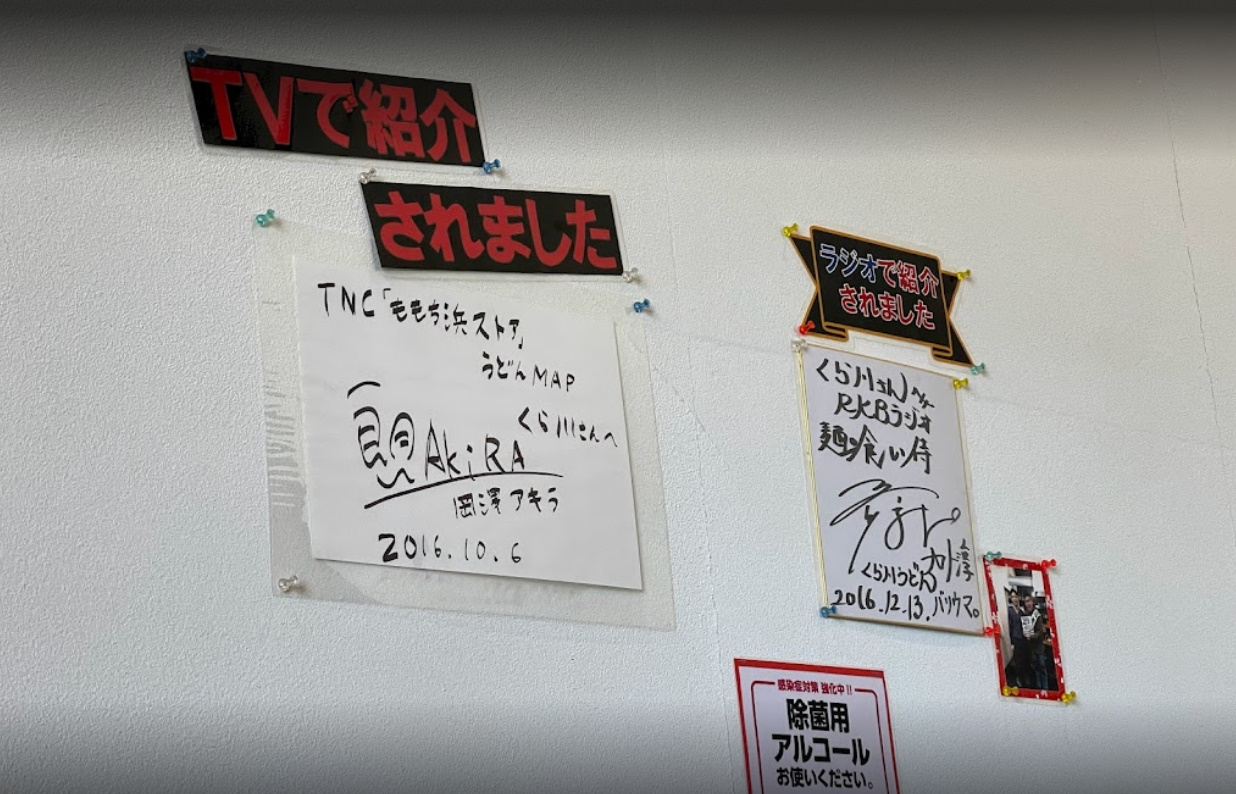 TVで紹介
されました
TNC「ももち浜ストア」
うどんMAP
くら川さんへ
AkiRA
岡澤アキラ
2016.10.6
ラジオで紹介
されました
くら川さんへ
RKBラジオ
麺喰い侍
くら川うどん
2016.12.13. バリウマ。
感染症対策 強化中!!
除菌用
アルコール
お使いください。